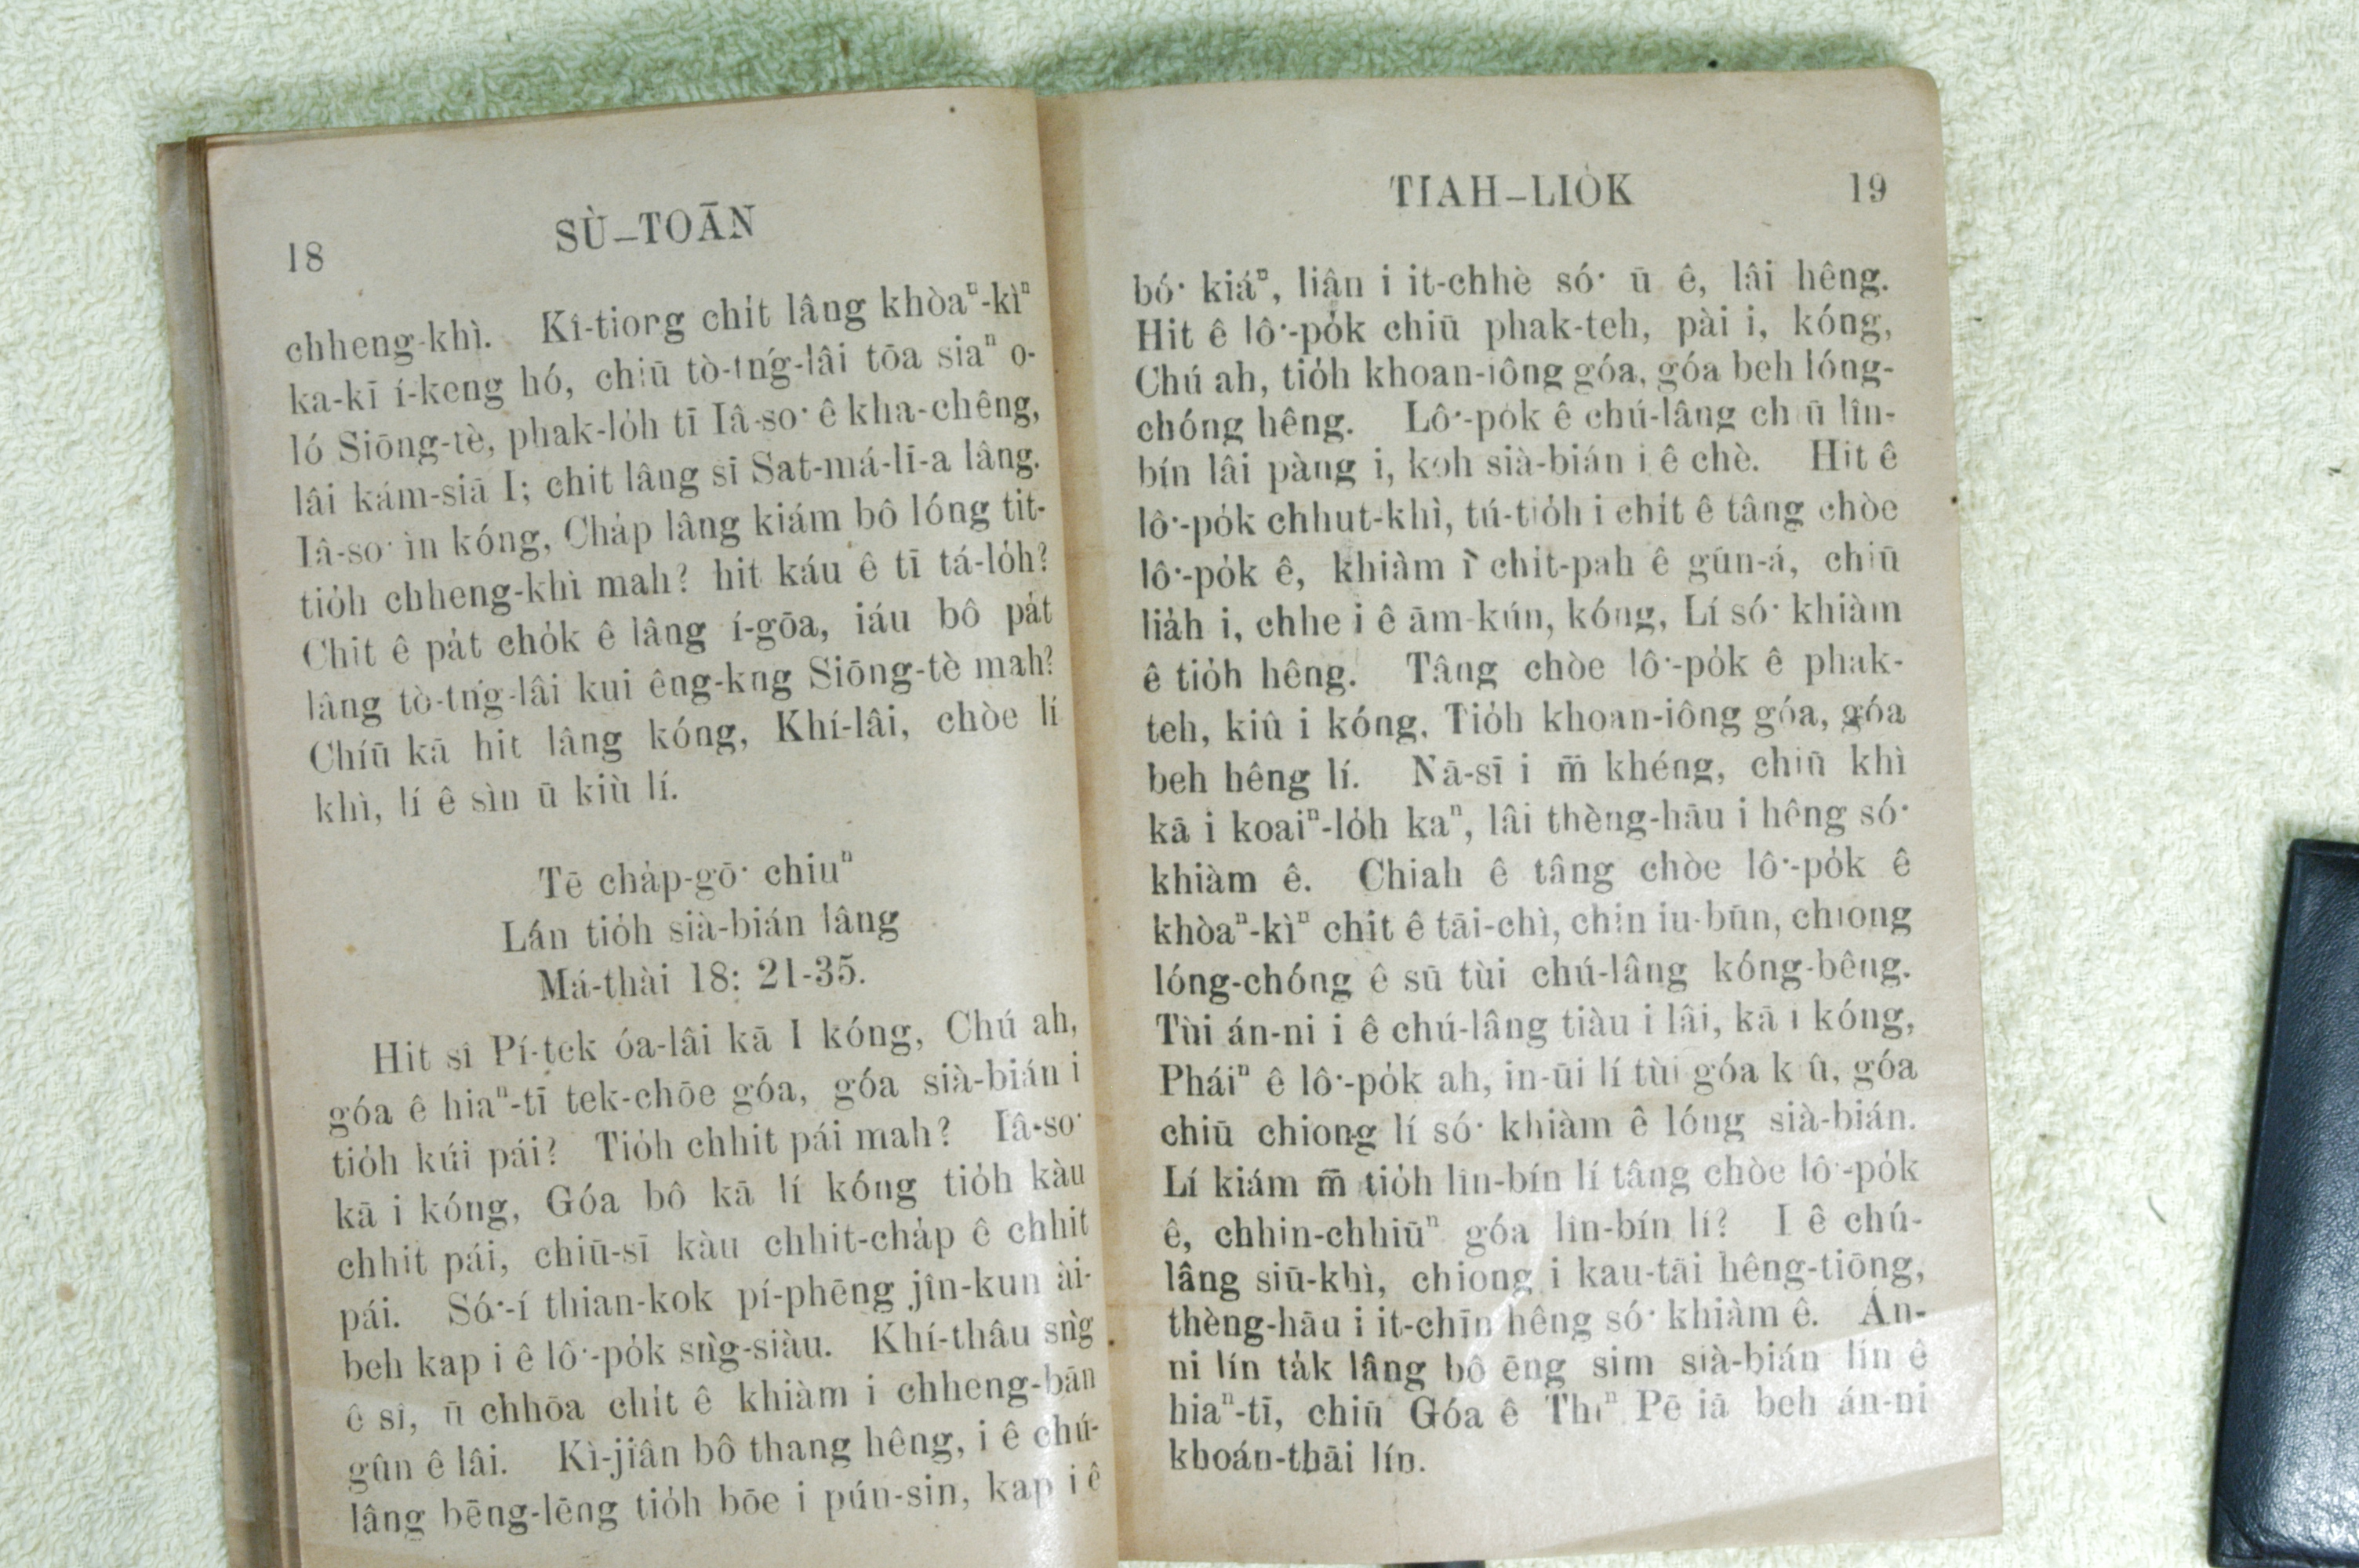 18 SÙ–TOĀN
chheng-khì. Kî-tiorg chi̍t lâng khòaⁿ-kìⁿ
ka-kī í-keng hó, chiū tò-tńg-lâi tōa siaⁿ o-
ló Siōng-tè, phak-lo̍h tī Iâ-so͘ ê kha-chêng,
lâi kám-siā I; chit lâng sī Sat-má-lī-a lâng.
Iâ-so͘ ìn kóng, Cha̍p lâng kiám bô lóng tit-
tio̍h chheng-khì mah? hit káu ê tī tá-lo̍h?
Chit ê pa̍t cho̍k ê lâng í-gōa, iáu bô pa̍t
lâng tò-tńg-lâi kui êng-kng Siōng-tè mah?
Chíū kā hit lâng kóng, Khí-lâi, chòe lí
khì, lí ê sìn ū kiù lí.
Tē cha̍p-gō͘ chiuⁿ
Lán tio̍h sià-bián lâng
Má-thài 18: 21-35.
Hit sî Pí-tek óa-lâi kā I kóng, Chú ah,
góa ê hiaⁿ-tī tek-chōe góa, góa sià-bián i
tio̍h kúi pái? Tio̍h chhit pái mah? Iâ-so͘
kā i kóng, Góa bô kā lí kóng tio̍h kàu
chhit pái, chiū-sī kàu chhit-cha̍p ê chhit
pái. Só͘-í thian-kok pí-phēng jîn-kun ài-
beh kap i ê lô͘-po̍k sǹg-siàu. Khí-thâu sǹg
ê sî, ū chhōa chi̍t ê khiàm i chheng-bān
gûn ê lâi. Kì-jiân bô thang hêng, i ê chú-
lâng bēng-lēng tio̍h bōe i pún-sin, kap i ê
TIAH–LIO̍K 19
bó͘ kiáⁿ, liân i it-chhè só͘ ū ê, lâi hêng.
Hit ê lô͘-po̍k chiū phak-teh, pài i, kóng,
Chú ah, tio̍h khoan-iông góa, góa beh lóng-
chóng hêng. Lô͘-po̍k ê chú-lâng ch ū lîn-
bín lâi pàng i, koh sià-bián i ê chè. Hit ê
lô͘-po̍k chhut-khì, tú-tio̍h i chi̍t ê tâng chòe
lô͘-po̍k ê, khiàm ì chi̍t-pah ê gûn-á, chiū
lia̍h i, chhe i ê ām-kún, kóng, Lí só͘ khiàm
ê tio̍h hêng. Tâng chòe lô͘-po̍k ê phak-
teh, kiû i kóng, Tio̍h khoan-iông góa, góa
beh hêng lí. Nā-sī i m̄ khéng, chiū khì
kā i koaiⁿ-lo̍h kaⁿ, lâi thèng-hāu i hêng só͘
khiàm ê. Chiah ê tâng chòe lô͘-po̍k ê
khòaⁿ-kìⁿ chit ê tāi-chì, chin iu-būn, chiong
lóng-chóng ê sū tùi chú-lâng kóng-bêng.
Tùi án-ni i ê chú-lâng tiàu i lâi, kā i kóng,
Pháiⁿ ê lô͘-po̍k ah, in-ūi lí tùi góa k û, góa
chiū chiong lí só͘ khiàm ê lóng sià-bián.
Lí kiám m̄ tio̍h lîn-bín lí tâng chòe lô͘-po̍k
ê, chhin-chhiūⁿ góa lîn-bín lí? I ê chú-
lâng siū-khì, chiong i kau-tāi hêng-tiōng,
thèng-hāu i it-chīn hêng só͘ khiàm ê. Án-
ni lín ta̍k lâng bô ēng sim sià-bián lín ê
hiaⁿ-tī, chiū Góa ê Thiⁿ Pē iā beh án-ni
khoán-thāi lín.